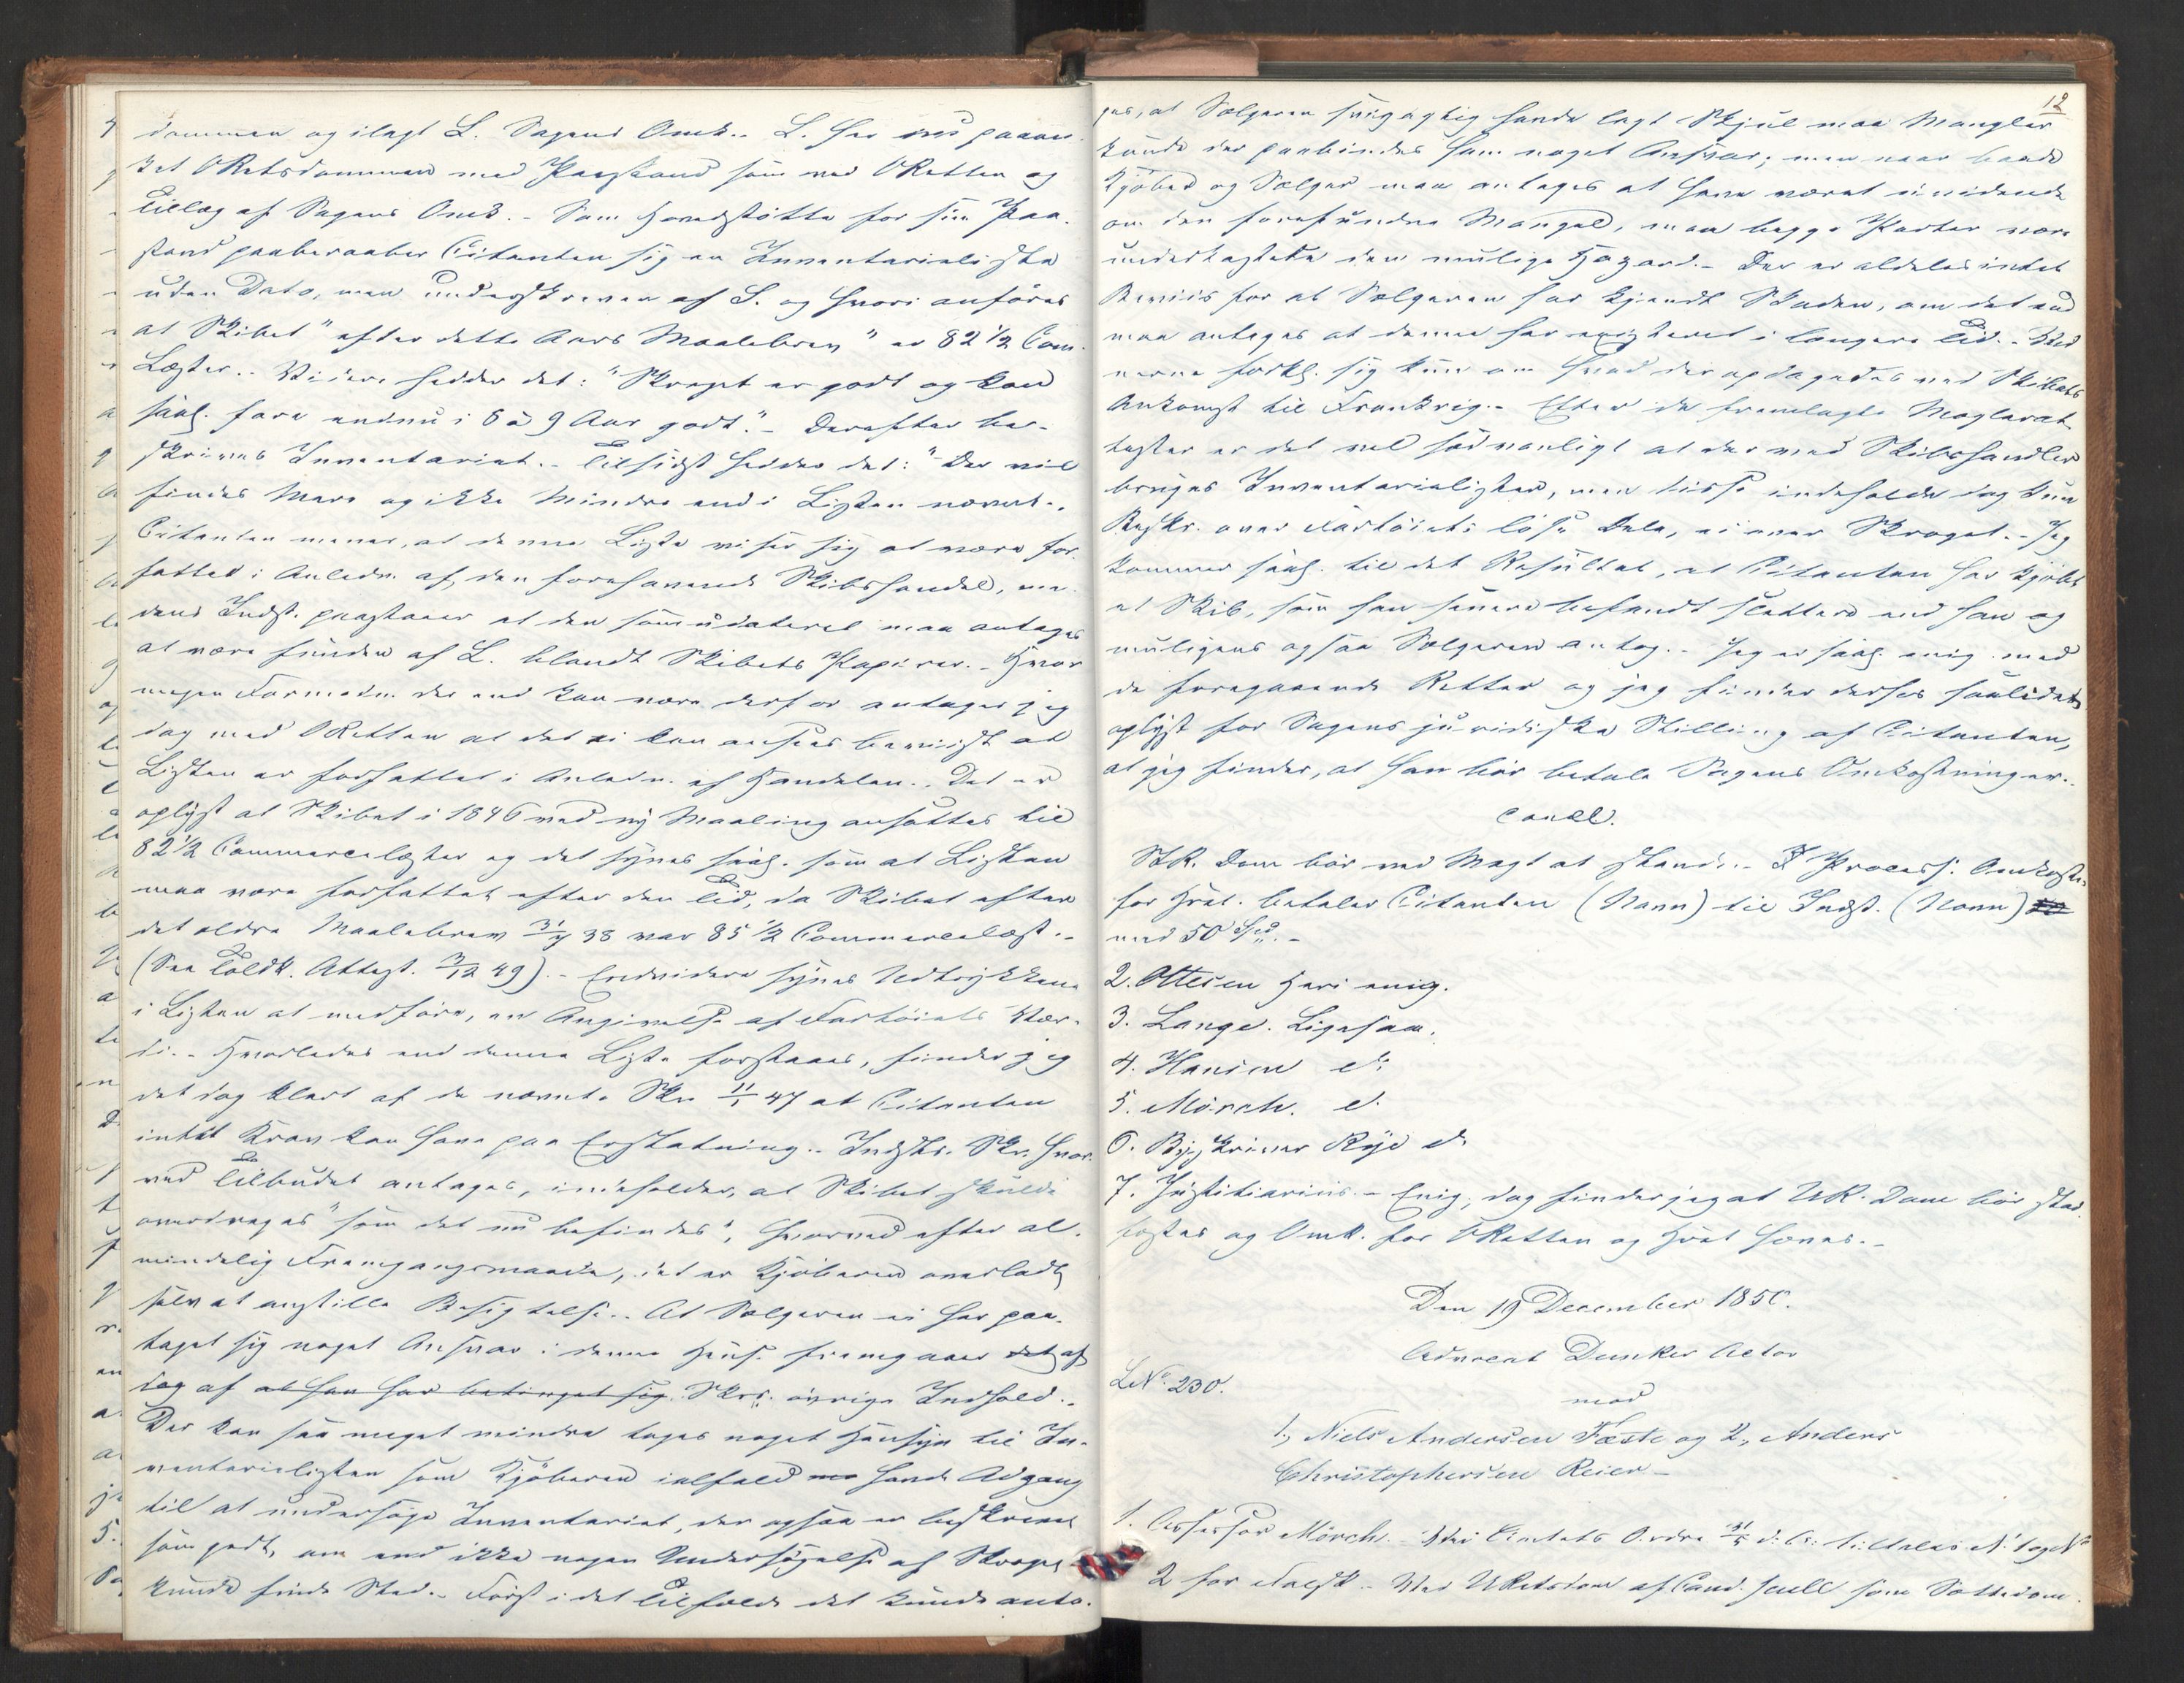 dommen og ilagt L. Sagens Omk.. L. har nu paaan-
ket ORetsdommen med Paastand som ved ORetten og
Tillæg af Sagens Omk. - Som Hovedstötte for sin Paa-
stand paaberaaber Citanten sig en Inventarieliste
uden Dato, men underskreven af S. og hvori anföres
at Skibet "efter dette Aars Maalebrev" er 82 1/2 Com.
Læster.. Videre hedder det: "Skroget er godt og kan
saal. fare endnu i 6 a 9 Aar godt". - Derefter be-
skrives Inventariet.. Tilsidst hedder det: "Der vil
findes Mere og ikke Mindre end i Listen nævnt..
Citanten mener, at denne Liste viser sig at være for-
fattet i Anledn. af den forehavende Skibshandel, me-
dens Indst. paastaaer at den som udateret maa antages
at være funden af L. blandt Skibets Papirer. - Hvor
megen Formodn. der end kan være derfor antager jeg
dog med ORetten at det ei kan ansees beviist at
Listen er forfattet i Anledn. af Handelen.. Det er
oplyst at Skibet i 1846 ved ny Maaling ansattes til
82 1/2 Commercelæster og det synes saal. som at Listen
maa være forfattet efter den Tid, da Skibet efter
det ældre Maalebrev 31/7 38 var 85 1/2 Commercelæst..
(See Toldk. Attest. 3/12 49). - Endvidere synes Udtrykkene
i Listen at medföre, en Angivelse af Fartöiets Vær-
di. - Hvorledes end denne Liste forstaaes, finder jeg
det dog klart af de nævnte Skr 11/1 47 at Citanten
intet Krav kan have paa Erstatning.. Indsts. Skr. hvor-
ved Tilbudet antages, indeholder, at Skibet skulde
overdrages "som det nu befindes", hvorved efter al-
mindelig Fremgangsmaade, det er Kjöberen overladt
selv at anstille Besigtelse.. At Sælgeren ei har paa-
taget sig noget Ansvar i denne Hens. fremgaaer det af
dog af at han har betinget sig. Skrs. övrige Indhold..
Der kan saa meget mindre tages noget Hensyn til In-
ventarielisten som Kjöberen ialfald havde Adgang
til at undersöge Inventariet, der ogsaa er beskrevet
som godt, om end ikke nogen Undersögelse af Skroget
kunde finde Sted.. Först i det Tilfælde det kunde anta-
12
ges, at Sælgeren svigagtig havde lagt Skjul paa Mangler
kunde der paabindes ham noget Ansvar; men naar baade
Kjöber og Sælger maa antages at have været uvidende
om den forefundne Mangel, maa begge Parter være
underkastede den mulige Hazard. - Der er aldeles intet
Beviis for at Sælgeren har kjendt Skaden, om det end
maa antages at denne har existeret i længere Tid.. Vid-
nerne forkl. sig kun om hvad der opdagedes ved Skibets
Ankomst til Frankrig.. Efter de fremlagte Mæglerat-
tester er det vel sædvanligt at der ved Skibshandler
bruges Inventarielister, men disse indeholde dog kun
Beskr. over Fartöiets löse Dele, ei over Skroget.. Jeg
kommer saal. til det Resultat, at Citanten har kjöbt
et Skib, som han senere befandt slettere end han og
muligens ogsaa Sælgeren antog. - Jeg er saal. enig med
de foregaaende Retter og jeg finder derhos saaledes
oplyst for Sagens juridiske Stilling af Citanten,
at jeg finder, at han bör betale Sagens Omkostninger..
Concl.
StR. Dom bör ved Magt at stande.. I Process. Omkostn.
for Höiest. betaler Citanten (Navn) til Indst. (Navn)
med 50 Spd. -
2. Ottesen Heri enig.
3. Lange. Ligesaa.
4. Hansen do
5. Mörch. do
6. Byskriver Rye do
7. Justitiarius. - Enig; dog finder jeg at UR. Dom bör stad-
fæstes og Omk. for ORetten og Höiest hæves. -
Den 19 December 1850.
Advocat Dunker Actor
LNo. 230.
mod
1., Niels Andersen Fæste og 2., Anders
Christophersen Reier -
1. Assessor Mörch. - Ved Amtets Ordre 31/5 d. A. tiltales No 1 og No
2 for Falsk - Ved URetsdom af Cand. som Sættedom-